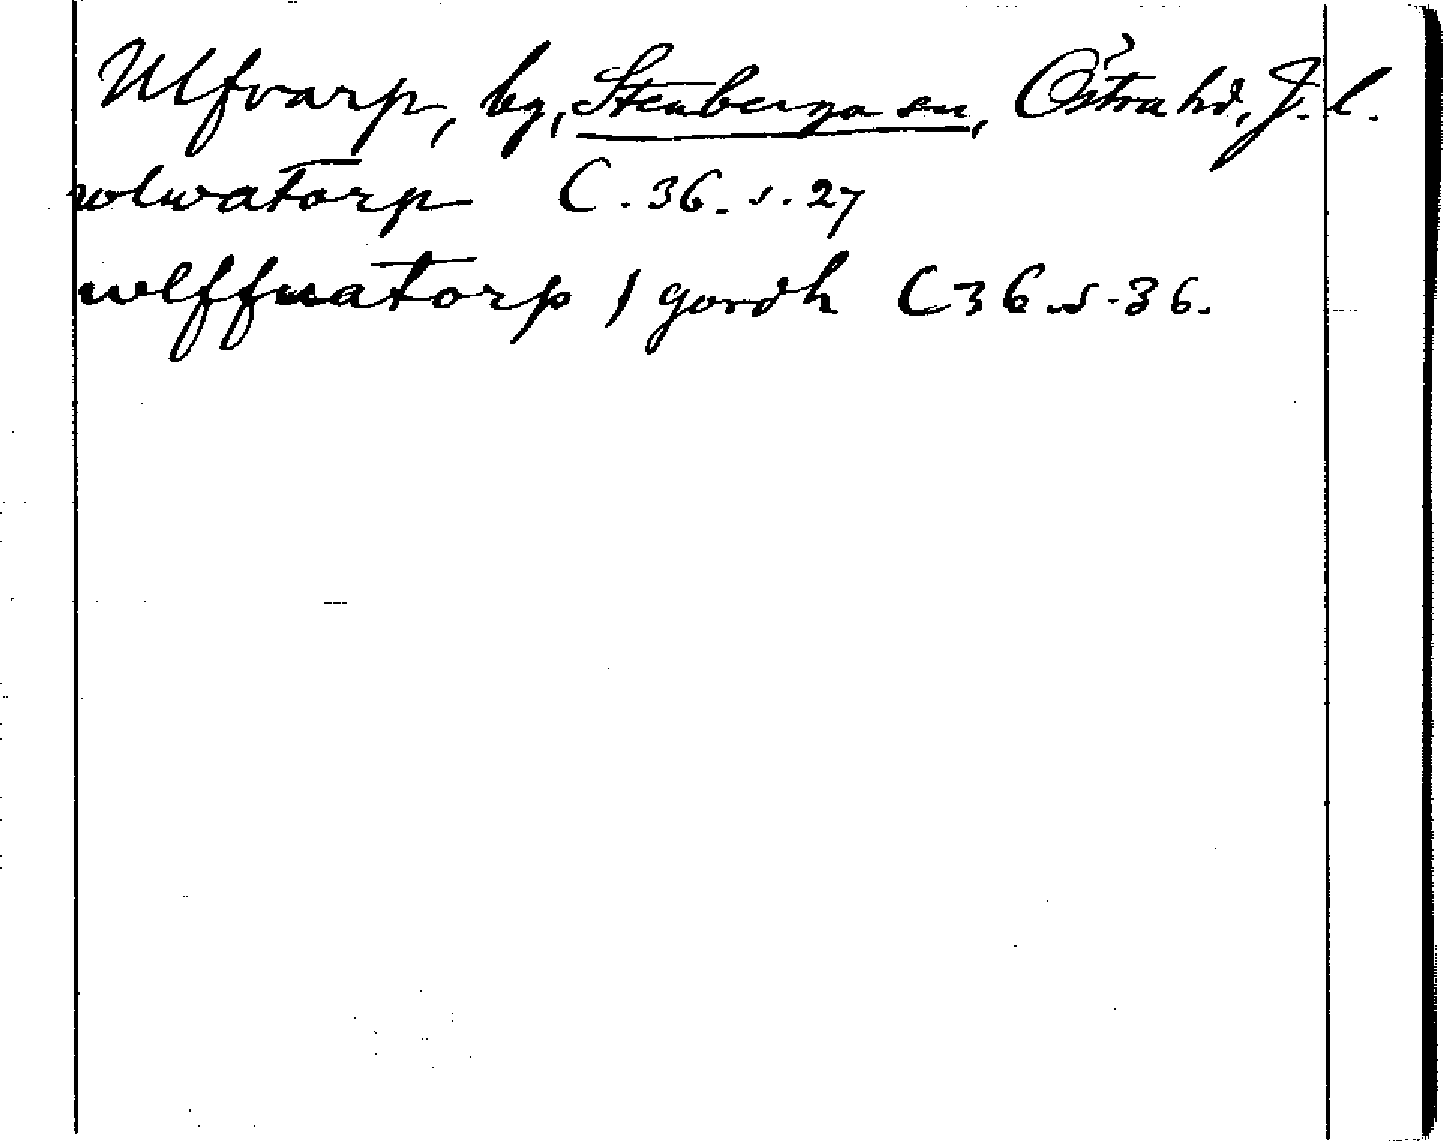 Ulfvarp, by, Stenberga sn, Östra hd, J. l.
wlwatorp C. 36. s. 27
wlffuatorp 1 gordh C 36 s. 36.